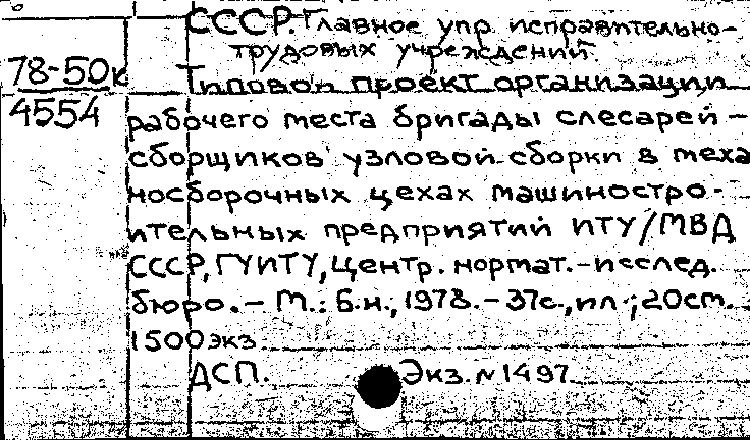 СССР. Главное упр. исправительно-
трудовых учреждений.
78-50к Типовой проект организации
4554 рабочего места бригады слесарей-
сборщиков узловой сборки в меха
носборочных цехах машиностро-
ительных предприятий ИТУ/МВД
СССР, ГУИТУ, Центр. нормат.-исслед.
бюро. - М.: Б.и., 1978. - 37с., ил.; 20см.
1500экз.
ДСП. Экз. N 1497